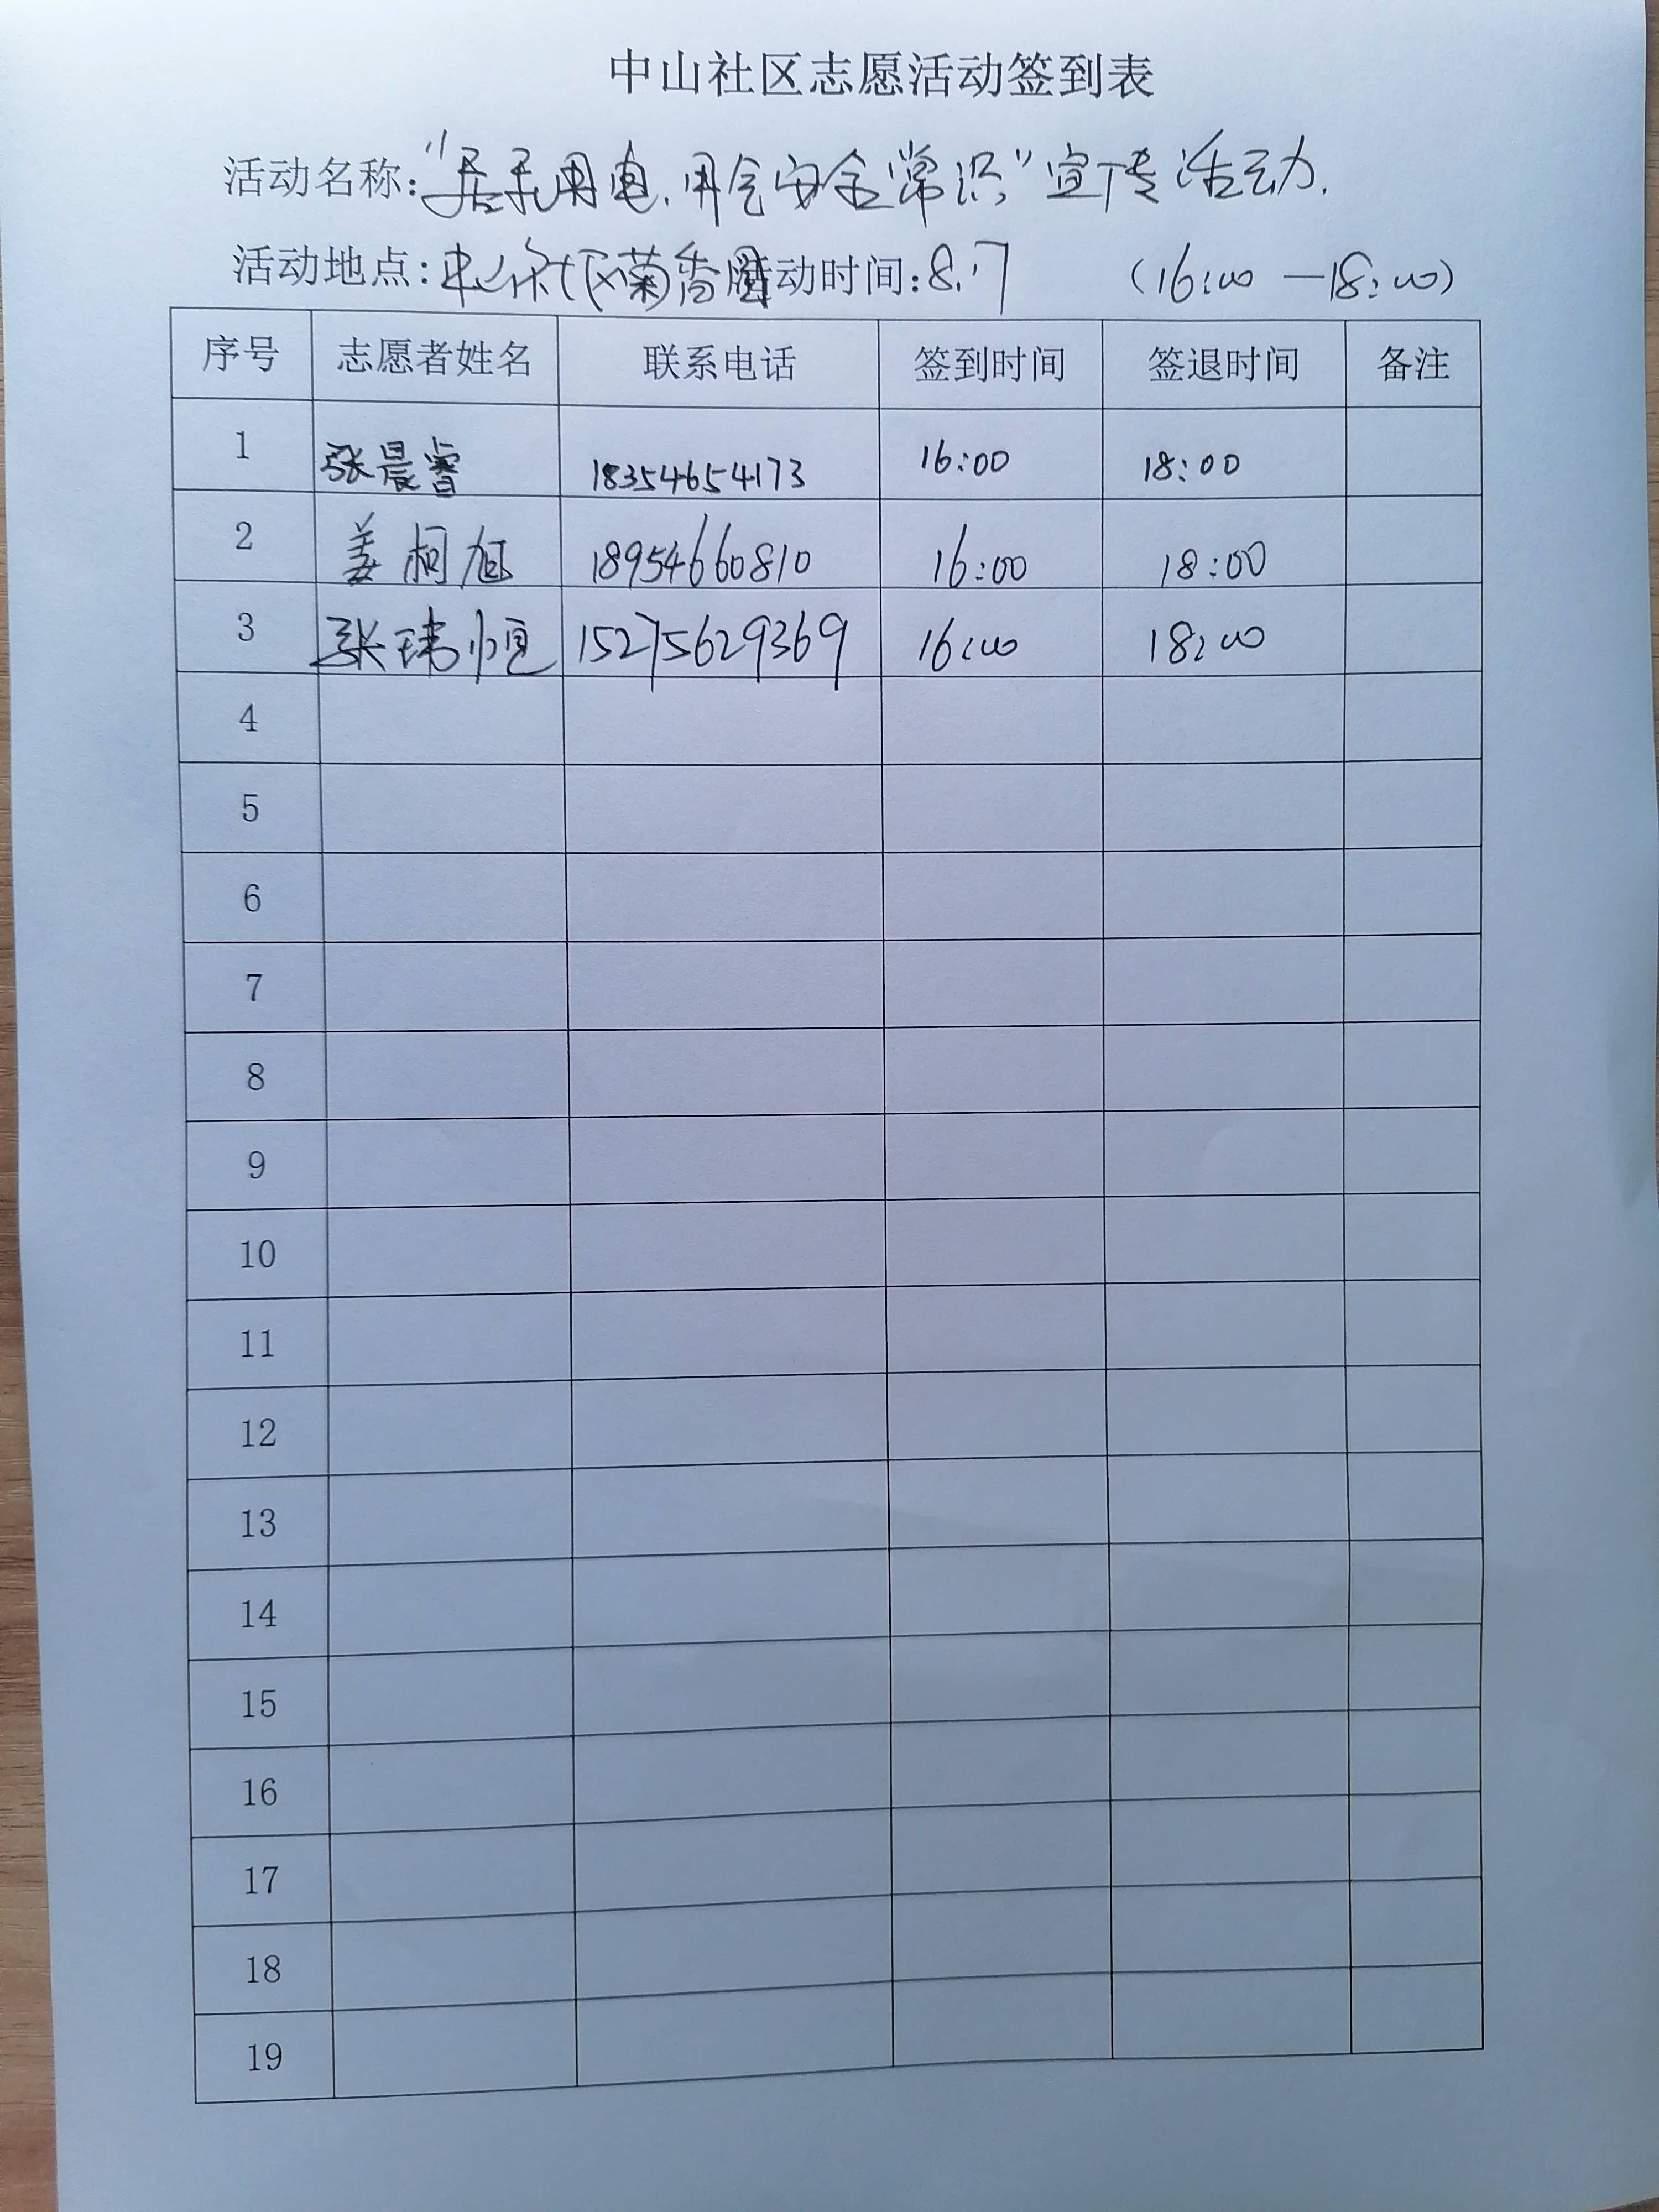 中山社区志愿活动签到表
活动名称:"居家用电.用气安全常识"宣传活动.
活动地点:中山社区菊香园活动时间:8.17 (16:00—18:00)
序号 志愿者姓名 联系电话 签到时间 签退时间 备注
1 张晨睿 18354654173 16:00 18:00
2 姜柯旭 18954660810 16:00 18:00
3 张玮恒 15275629369 16:00 18:00
4
5
6
7
8
9
10
11
12
13
14
15
16
17
18
19